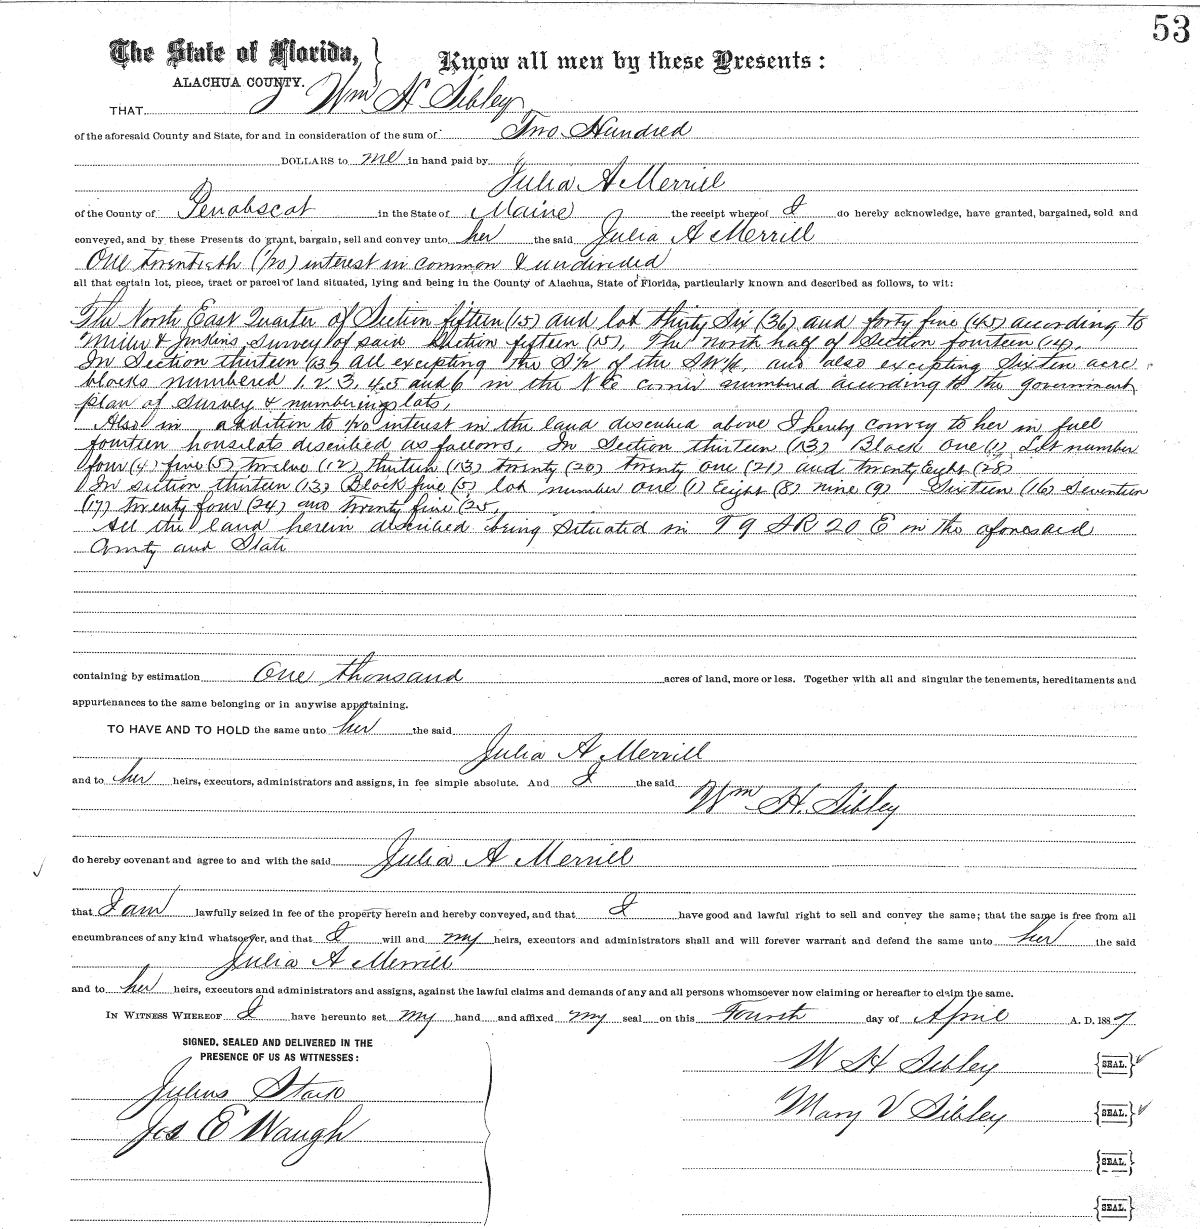 53
The State of Florida, } Know all men by these Presents :
ALACHUA COUNTY.
THAT I Wm H Sibley
of the aforesaid County and State, for and in consideration of the sum of Two Hundred
DOLLARS to me in hand paid by
Julia A Merrill
of the County of Penobscot in the State of Maine the receipt whereof I do hereby acknowledge, have granted, bargained, sold and
conveyed, and by these Presents do grant, bargain, sell and convey unto her the said Julia A Merrill
One twentieth (1/20) interest in common & undivided
all that certain lot, piece, tract or parcel of land situated, lying and being in the County of Alachua, State of Florida, particularly known and described as follows, to wit:
The North East Quarter of Section fifteen (15) and lot thirty Six (36) and forty five (45) according to
Miller & Jenkins, Survey of said Section fifteen (15), The north half of Section fourteen (14),
In Section thirteen (13) all excepting the S 1/2 of the SW 1/4, and also excepting Sixteen acre
blocks numbered 1, 2 3, 4, 5 and 6 in the N E corner numbered according to the government
plan of survey & numbering lots,
Also in addition to 1/20 interest in the land described above I hereby convey to her in full
fourteen houselots described as follows, In Section thirteen (13) Block One (1) Lot number
four (4) five (5) twelve (12) thirteen (13) twenty (20) twenty one (21) and twenty Eight (28)
In section thirteen (13) Block five (5) lot number one (1) Eight (8) nine (9) Sixteen (16) Seventeen
(17) twenty four (24) and twenty five (25,
All the land herein described being Situated in T 9 S R 20 E in the aforesaid
County and State
containing by estimation One thousand acres of land, more or less. Together with all and singular the tenements, hereditaments and
appurtenances to the same belonging or in anywise appertaining.
TO HAVE AND TO HOLD the same unto her the said
Julia A Merrill
and to her heirs, executors, administrators and assigns, in fee simple absolute. And I the said
Wm H. Sibley
do hereby covenant and agree to and with the said Julia A Merrill
that I am lawfully seized in fee of the property herein and hereby conveyed, and that I have good and lawful right to sell and convey the same; that the same is free from all
encumbrances of any kind whatsoever, and that I will and my heirs, executors and administrators shall and will forever warrant and defend the same unto her the said
Julia A Merrill
and to her heirs, executors and administrators and assigns, against the lawful claims and demands of any and all persons whomsoever now claiming or hereafter to claim the same.
IN WITNESS WHEREOF I have hereunto set my hand and affixed my seal on this Fourth day of April A. D. 1887
SIGNED, SEALED AND DELIVERED IN THE
PRESENCE OF US AS WITNESSES:
W H Sibley {SEAL.}
Julius Stark
Mary V Sibley {SEAL.}
Jos E Waugh
{SEAL.}
{SEAL.}